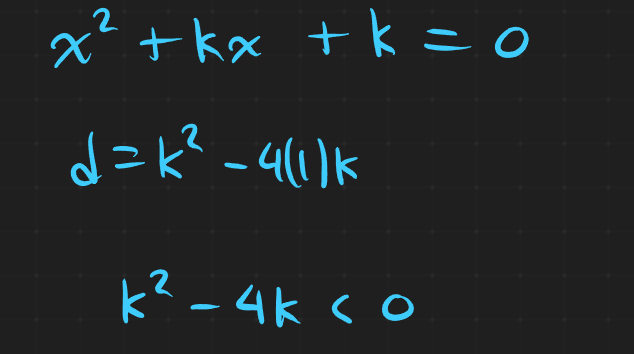 x² + kx + k = 0
d = k² - 4(1)k
k² - 4k < 0